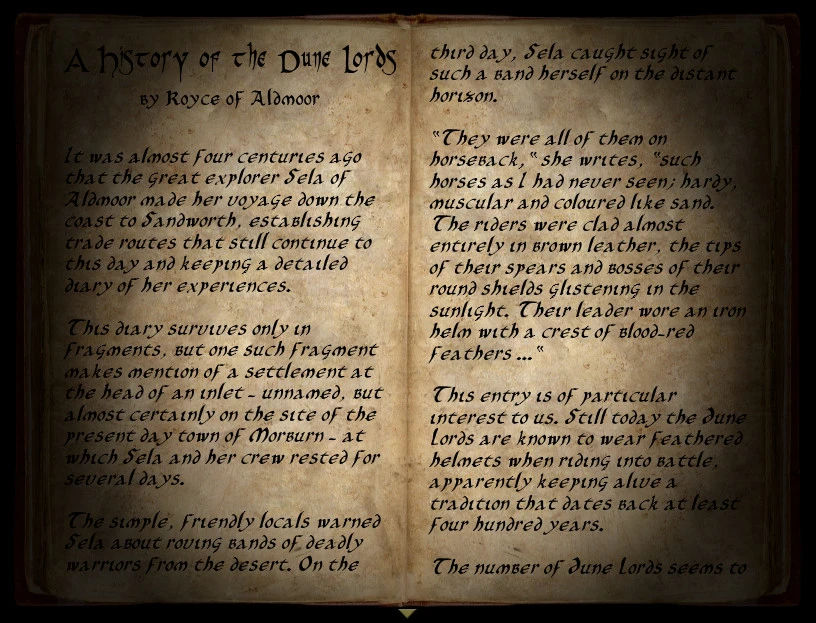 A History of the Dune Lords
by Royce of Aldmoor
It was almost four centuries ago
that the great explorer Sela of
Aldmoor made her voyage down the
coast to Sandworth, establishing
trade routes that still continue to
this day and keeping a detailed
diary of her experiences.
This diary survives only in
fragments, but one such fragment
makes mention of a settlement at
the head of an inlet - unnamed, but
almost certainly on the site of the
present day town of Morburn - at
which Sela and her crew rested for
several days.
The simple, friendly locals warned
Sela about roving bands of deadly
warriors from the desert. On the
third day, Sela caught sight of
such a band herself on the distant
horizon.
"They were all of them on
horseback," she writes, "such
horses as I had never seen; hardy,
muscular and coloured like sand.
The riders were clad almost
entirely in brown leather, the tips
of their spears and bosses of their
round shields glistening in the
sunlight. Their leader wore an iron
helm with a crest of blood-red
feathers ..."
This entry is of particular
interest to us. Still today the Dune
Lords are known to wear feathered
helmets when riding into battle,
apparently keeping alive a
tradition that dates back at least
four hundred years.
The number of Dune Lords seems to